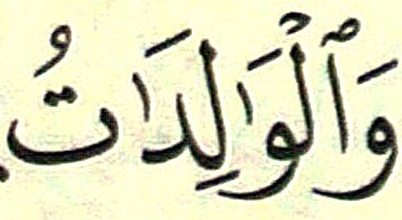 وَٱلْوَٰلِدَٰتُ